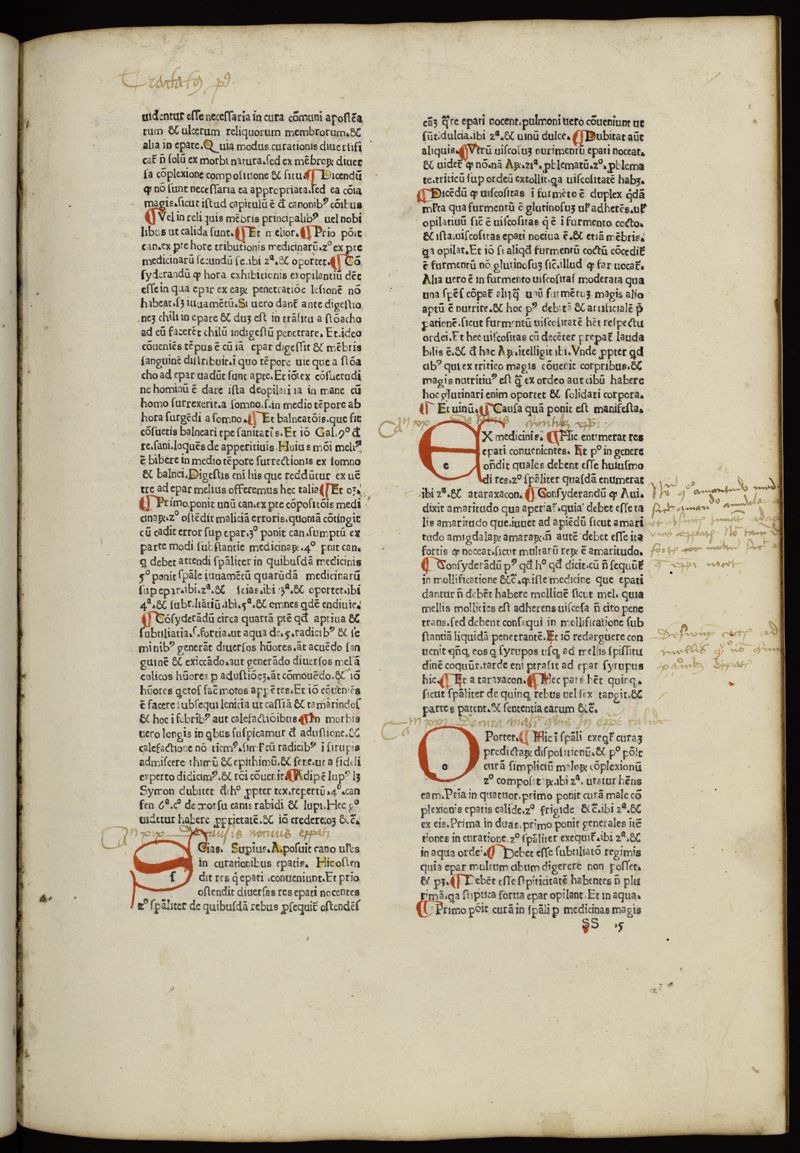 uidentur esse necessaria in cura cōmuni apostēa
tum & ulcerum reliquorum membrorum.&
alia in epate. Quia modus curationis diuersifi
cat̄ n̄ solū ex morbi natura. sed ex mēbroꝝ diuer
sa cōplexione compositione & situ. ¶ Dicendū
ꝙ nō sunt necessaria ea appropriata. sed ea cōia
magis. sicut istud capitulū ē d̄ canonibꝰ cōibus
¶ Vel in reliquis mēbris principalibꝰ uel nobi
libus ut calida sunt. ¶ Et melior. ¶ Prio pōit
can. ex pte hore tributionis medicinarū. 2º ex pte
medicinarū secundū se. ibi 2ª. & oportet. ¶ Cō
syderandū ꝙ hora exhibitionis exopilantiū dēt
esse in qua epar ex eaꝝ penetratiōe lesionē nō
habeat. sꝫ iuuamētū. Si uero dant̄ ante digestio
neꝫ chili in epate & duꝫ est in trāsitu a stōacho
ad eū facerēt chilū indigestū penetrare. Et ideo
cōueniēs tēpus ē cū iā epar digessit & mēbris
sanguinē distribuit. i quo tēpore uie que a stōa
cho ad epar uadūt sunt apte. Et iō ex cōsuetudi
ne hominū ē dare ista deopilatiua in mane cū
homo surrexerit a somno. s. in medio tēpore ab
hora surgēdi a somno. ¶ Et balneatōis. que sit
cōsuetis balneari tpe sanitatis. Et iō Gal. 5º d̄
re. sani. loquēs de apperitiuis. Huiusmōi meliꝰ
ē bibere in medio tēpore surrectionis ex somno
& balnei. Digestis eni his que reddūtur ex uē
tre ad epar melius offeremus hec talia ¶ Et oꝫ.
¶ Primo. ponit unū can. ex pte cōpositōis medi
cinaꝝ. 2º ostēdit maliciā erroris. quoniā cōtingit
cū cadit error sup epar. 3º ponit can. sumptū ex
parte modi substantie medicinaꝝ. 4º pōit can.
q̄ debet attendi spāliter in quibusdā medicinis
5º ponit spāle iuuamētū quarūdā medicinarū
sup epar. ibi. 2ª. & scias. ibi 3ª. & oportet. ibi
4ª. & subtiliatiū. ibi. 5ª. & omnes qdē endiuie.
¶ Cōsyderādū circa quartā ptē qd̄ aptiua &
subtiliatia. s. fortia. ut aqua de. 5. radicibꝰ & se
minibꝰ generāt diuersos hūores. aut acuēdo san
guinē & exiccādo. aut generādo diuersos melā
colicos hūores p adustiōeꝫ. at cōmouēdo. & iō
hūores quos factōs appētes. Et iō cōueniēs
ē facere subsequi lenitia ut cassiā & tamarindos
& hoc i febribꝰ aut calefactiōibus. ¶ In morbis
uero longis in qbus suspicamur d̄ adustione. &
calefactione nō timemꝰ. sim̄l cū radicibꝰ i sirupis
admiscere thimū & epithimū. & sene. ut a fideli
experto didicimꝰ. & rōi cōuenit. ¶ Adipē lupꝰ lꝫ
Symon dubitet d̄ hº ꝓpter tex. repertū. 4º. can
fen 6ª. cº de morsu canis rabidi & lupi. Hec pº
uidetur habere ꝓprietatē. & iō credere oꝫ &c̄.
Scias. Supius. A. posuit cano ul̄es
in curationibus epatis. Hic osten
dit res q̄ epati conueniunt. Et prio
ostendit diuersas res epati nocentes
2º spāliter de quibusdā rebus ꝓsequit̄ ostendēs
cāꝫ q̄re epati nocent. pulmoni uero cōueniunt ut
sūt dulcia. ibi 2ª. & uinū dulce. ¶ Dubitat aūt
aliquis. ¶ Vtrū uiscositas nutrimentū epati noceat.
& uidet̄ ꝙ nō. nā Aꝓ. 21ª. ꝓblematū. 2º. ꝓblema
te. triticū sup ordeū extollit. qa uiscositatē habꝫ.
¶ Dicēdū ꝙ uiscositas i furmēto ē duplex qdā
mlta qua furmentū ē glutinosuꝫ ul̄ adherēs. ul̄
opilatiuū sic̄ ē uiscositas q̄ ē i furmento cocto.
& ista uiscositas epati nociua ē. & etiā mēbris.
qa opilat. Et iō si aliqd furmentū coctū cōcedit̄
ē furmentū nō glutinosuꝫ sic̄. illud ꝙ far uocat̄.
Alia uero ē in furmento uiscositas moderata qua
una spēs cōpat̄ aliq̄ unū furmētuꝫ magis alio
aptū ē nutrire. & hoc pꝰ debitā & artificialē p̄
parationē. sicut furmentū uiscositatē h̄et respectu
ordei. Et hec uiscositas cū decēter prepat̄ lauda
bilis ē. & d̄ hac Aꝓ. itelligit ibi. Vnde ꝓpter qd
cibꝰ qui ex tritico magis cōuenit corpribus. &
magis nutritiuꝰ est q̄ ex ordeo aut cibū habere
hoc glutinari enim oportet & solidari corpora.
¶ Et uinū. ¶ Causa quā ponit est manifesta.
EX medicinis. ¶ Hic enumerat res
epati conuenientes. Et pº in genere
ōndit quales debent esse huiusmo
di res. 2º spāliter quasdā enumerat
ibi 2ª. & ataraxacon. ¶ Consyderandū ꝙ Aui.
dixit amaritudo qua aperiat̄. quia debet esse ta
lis amaritudo que iuuet ad apiēdū sicut amari
tudo amigdalaꝝ amaraꝝ. n̄ autē debet esse ita
fortis ꝙ noceat. sicut multarū reꝝ ē amaritudo.
¶ Consyderādū pꝰ qd̄ hº qd dicit. cū n̄ sequūt̄
in mollificatione &c̄. ꝙ iste medicine que epati
dantur n̄ debēt habere molliciē sicut mel. quia
mellis mollicies est adherens uiscosa n̄ cito pene
trans. sed debent consequi in mollificatione sub
stantiā liquidā penetrantē. Et iō redarguere con
uenit qn̄q. eos q syrupos usq ad mellis spissitu
dinē coquūt. tarde eni ptrāsit ad epar syrupus
hic. ¶ Et a taraxacon. ¶ Hec pars h̄et quinq.
sicut spāliter de quinq rebus uel sex tangit. &
partes patent. & sententia earum &c̄.
OPortet. ¶ Hic i spāli exeqt̄ curaꝫ
predictaꝝ dispositionū. & pº pōit
curā simpliciū malaꝝ cōplexionū
2º compositaꝝ. ibi 2ª. utatur h̄ens
eam. Prīa in quatuor. primo ponit curā male cō
plexionis epatis calide. 2º frigide &c̄. ibi 2ª. &
ex eis. Prima in duas. primo ponit generales itē
tiones in curatione. 2º spāliter exequit̄. ibi 2ª. &
in aqua ordei. ¶ Debet esse subtiliatō regimis
quia epar multum cibum digerere non posset.
& pꝫ. ¶ Debēt esse stipticitatē habentes n̄ plu
rimā. qa stiptica fortia epar opilant. Et in aqua.
¶ Primo pōit curā in spāli p medicinas magis
SS 15